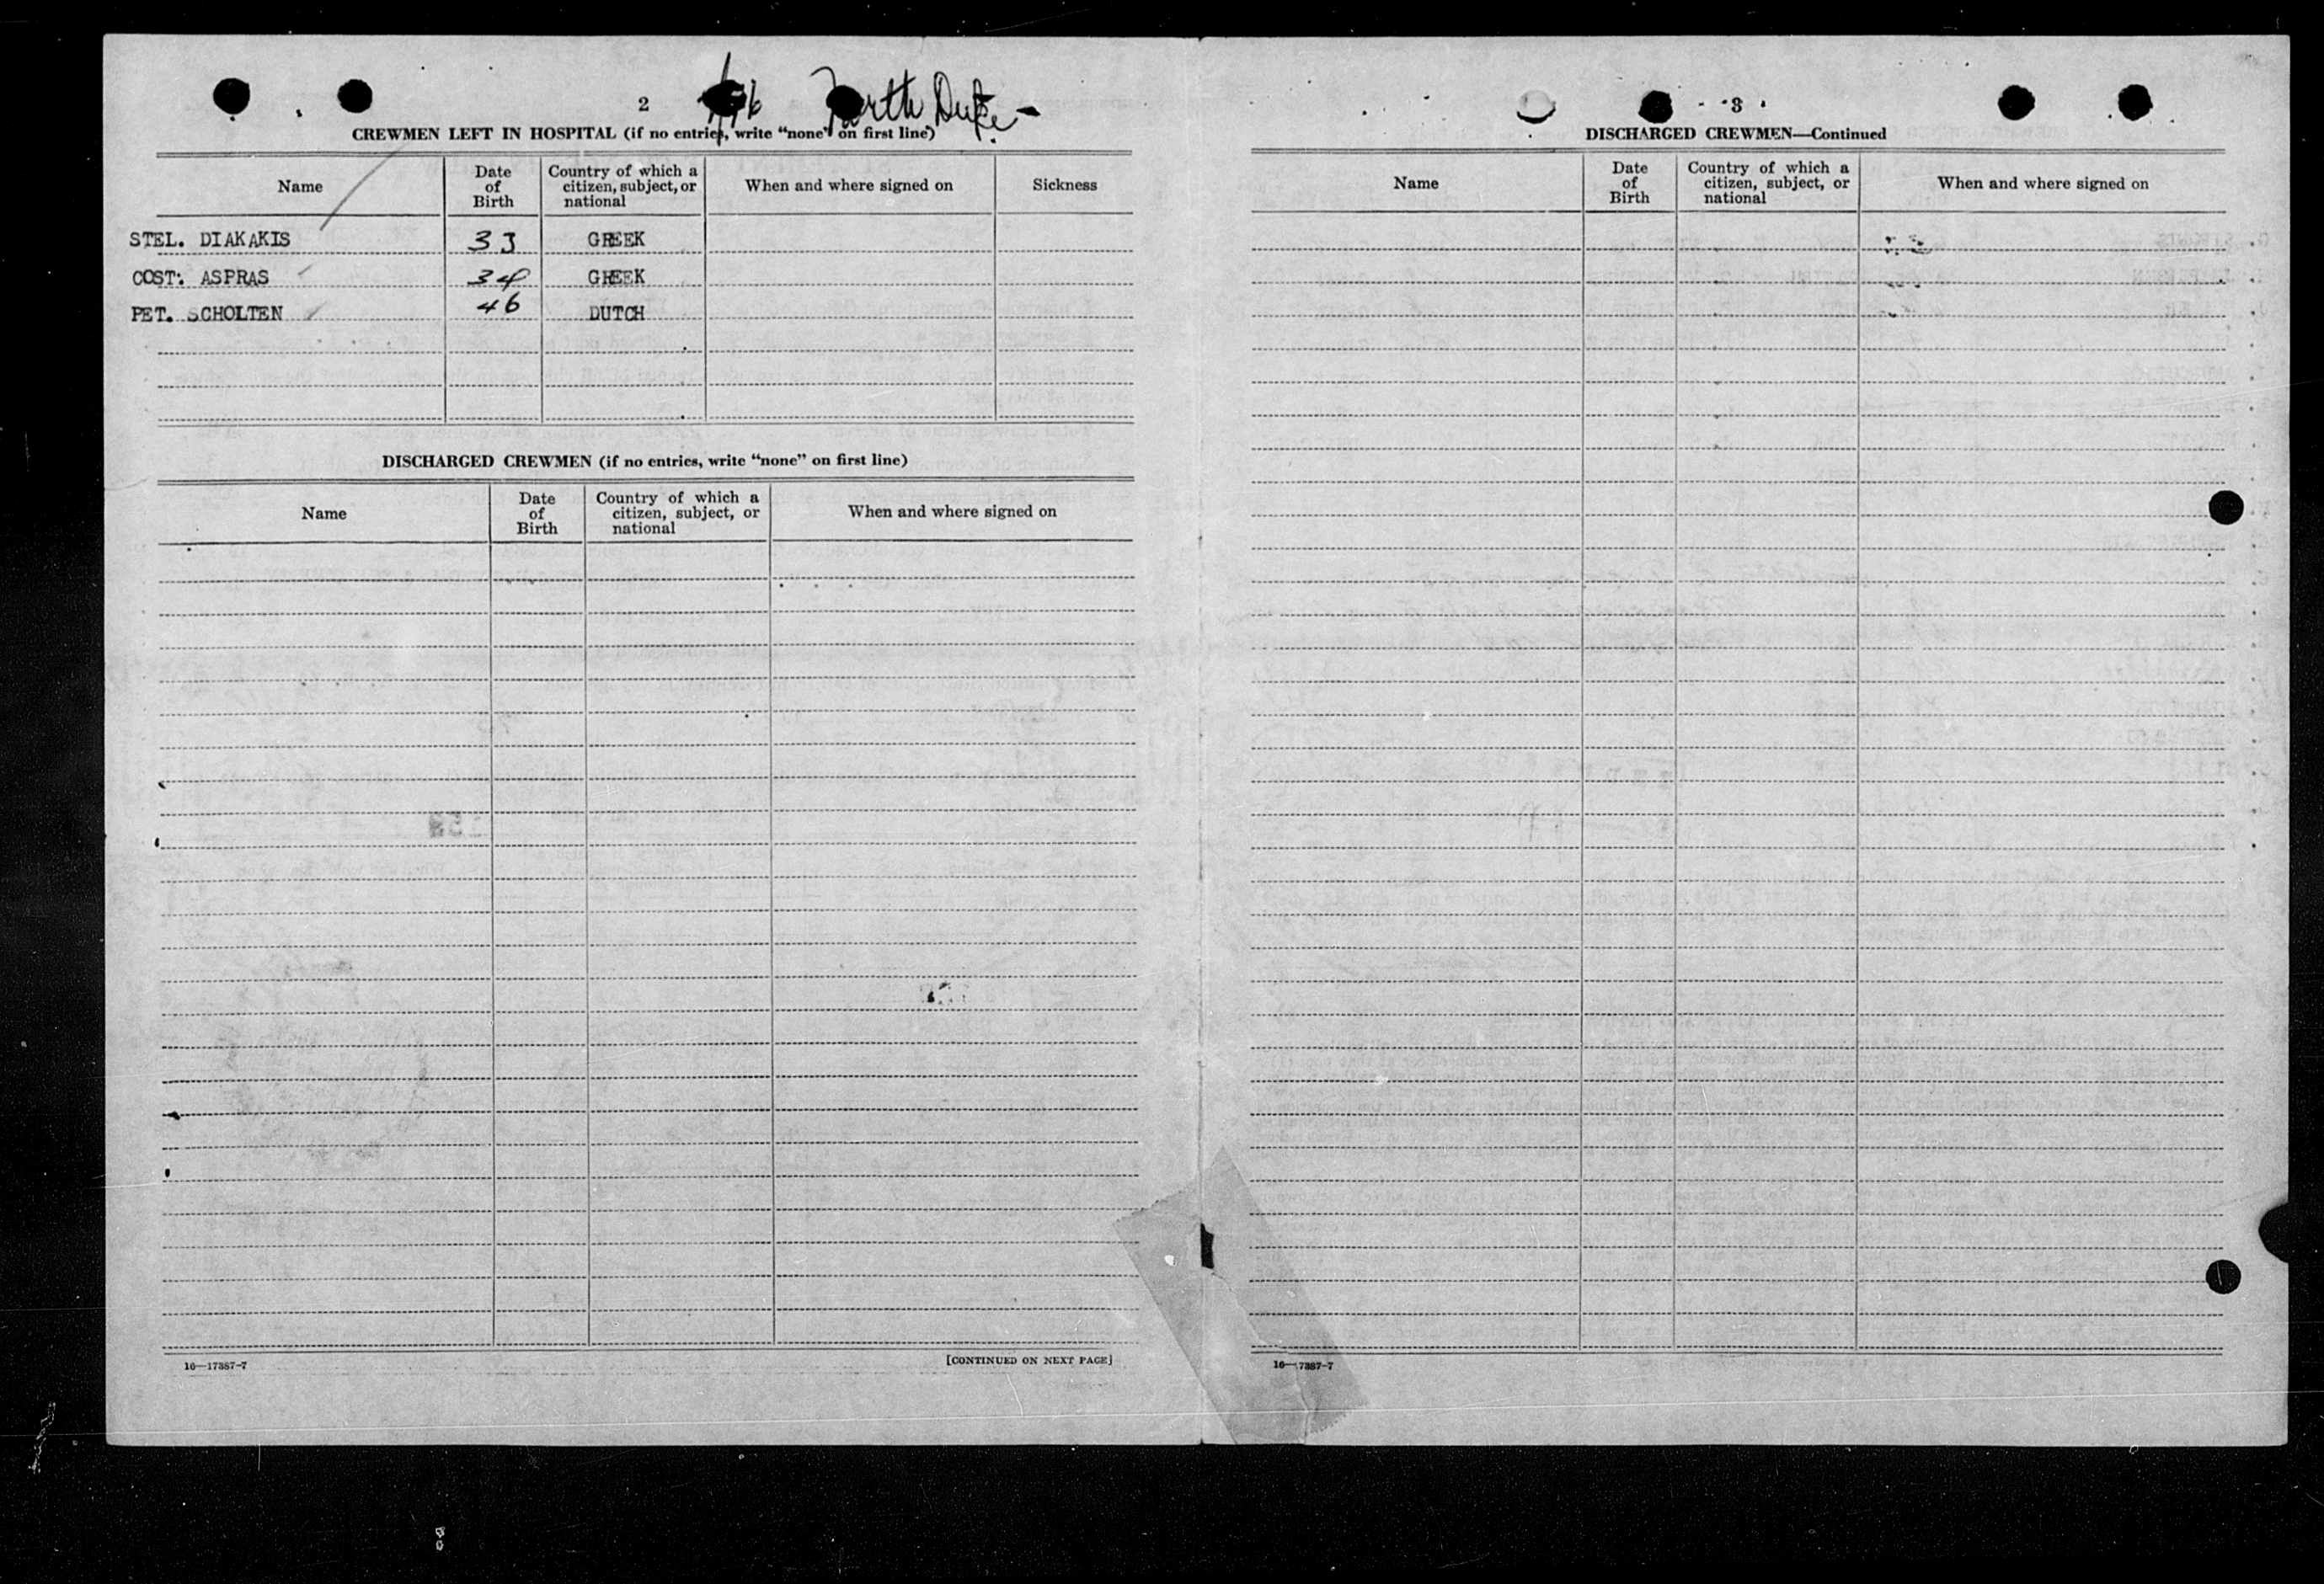 2
North Duke
CREWMEN LEFT IN HOSPITAL (if no entries, write "none" on first line)
Name
Date of Birth
Country of which a citizen, subject, or national
When and where signed on
Sickness
STEL. DIAKAKIS 33 GREEK
COST: ASPRAS 34 GREEK
PET. SCHOLTEN 46 DUTCH
DISCHARGED CREWMEN (if no entries, write "none" on first line)
Name
Date of Birth
Country of which a citizen, subject, or national
When and where signed on
16—17387-7
[CONTINUED ON NEXT PAGE]
3
DISCHARGED CREWMEN—Continued
Name
Date of Birth
Country of which a citizen, subject, or national
When and where signed on
16—17387-7